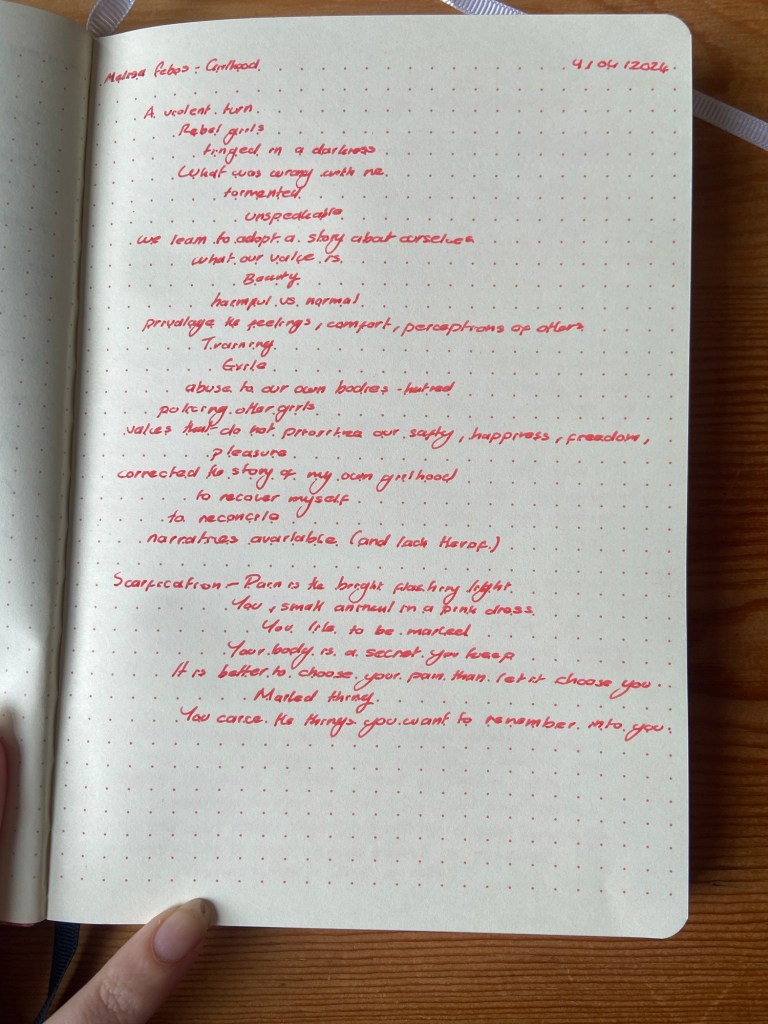 Melissa Febos - Girlhood. 9/04/2024
A violent turn
Rebel girls
tinged in a darkness
What was wrong with me
tormented
unspeakable
we learn to adopt a story about ourselves
what our value is
Beauty
harmful vs normal
privalage the feelings, comfort, perceptions of others
Training
Girls
abuse to our own bodies - hatred
policing other girls
values that do not prioritea our safty, happiness, freedom,
pleasure
corrected the story of my own girlhood
to recover myself
to reconcile
narratives available (and lack therof.)
Scarification - Pain is the bright flashing light.
You, small animul in a pink dress.
You like to be marked
Your body is a secret you keep
It is better to choose your pain than let it choose you
Marked thing.
You carve the things you want to remember into you.